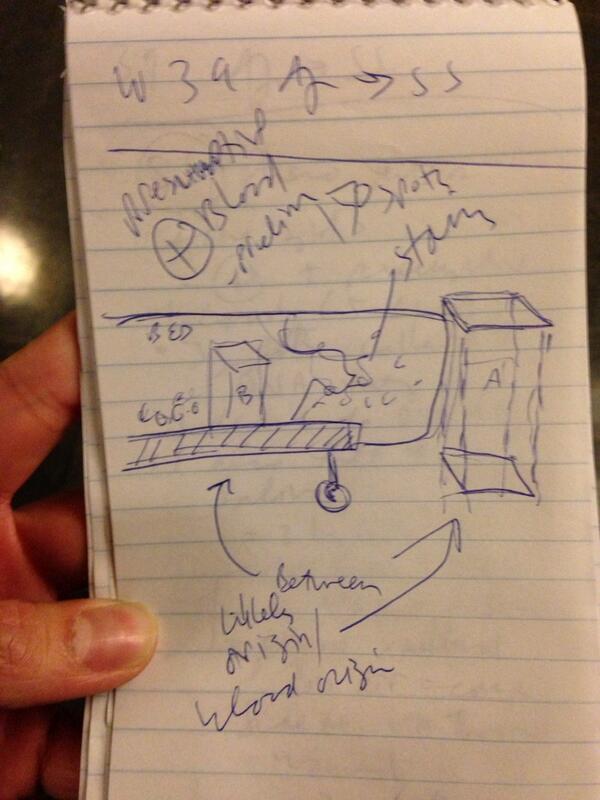 W 39
Presumptive
+ Blood
spots
stains
BED
B
A
Between
likely
origin/
blood origin